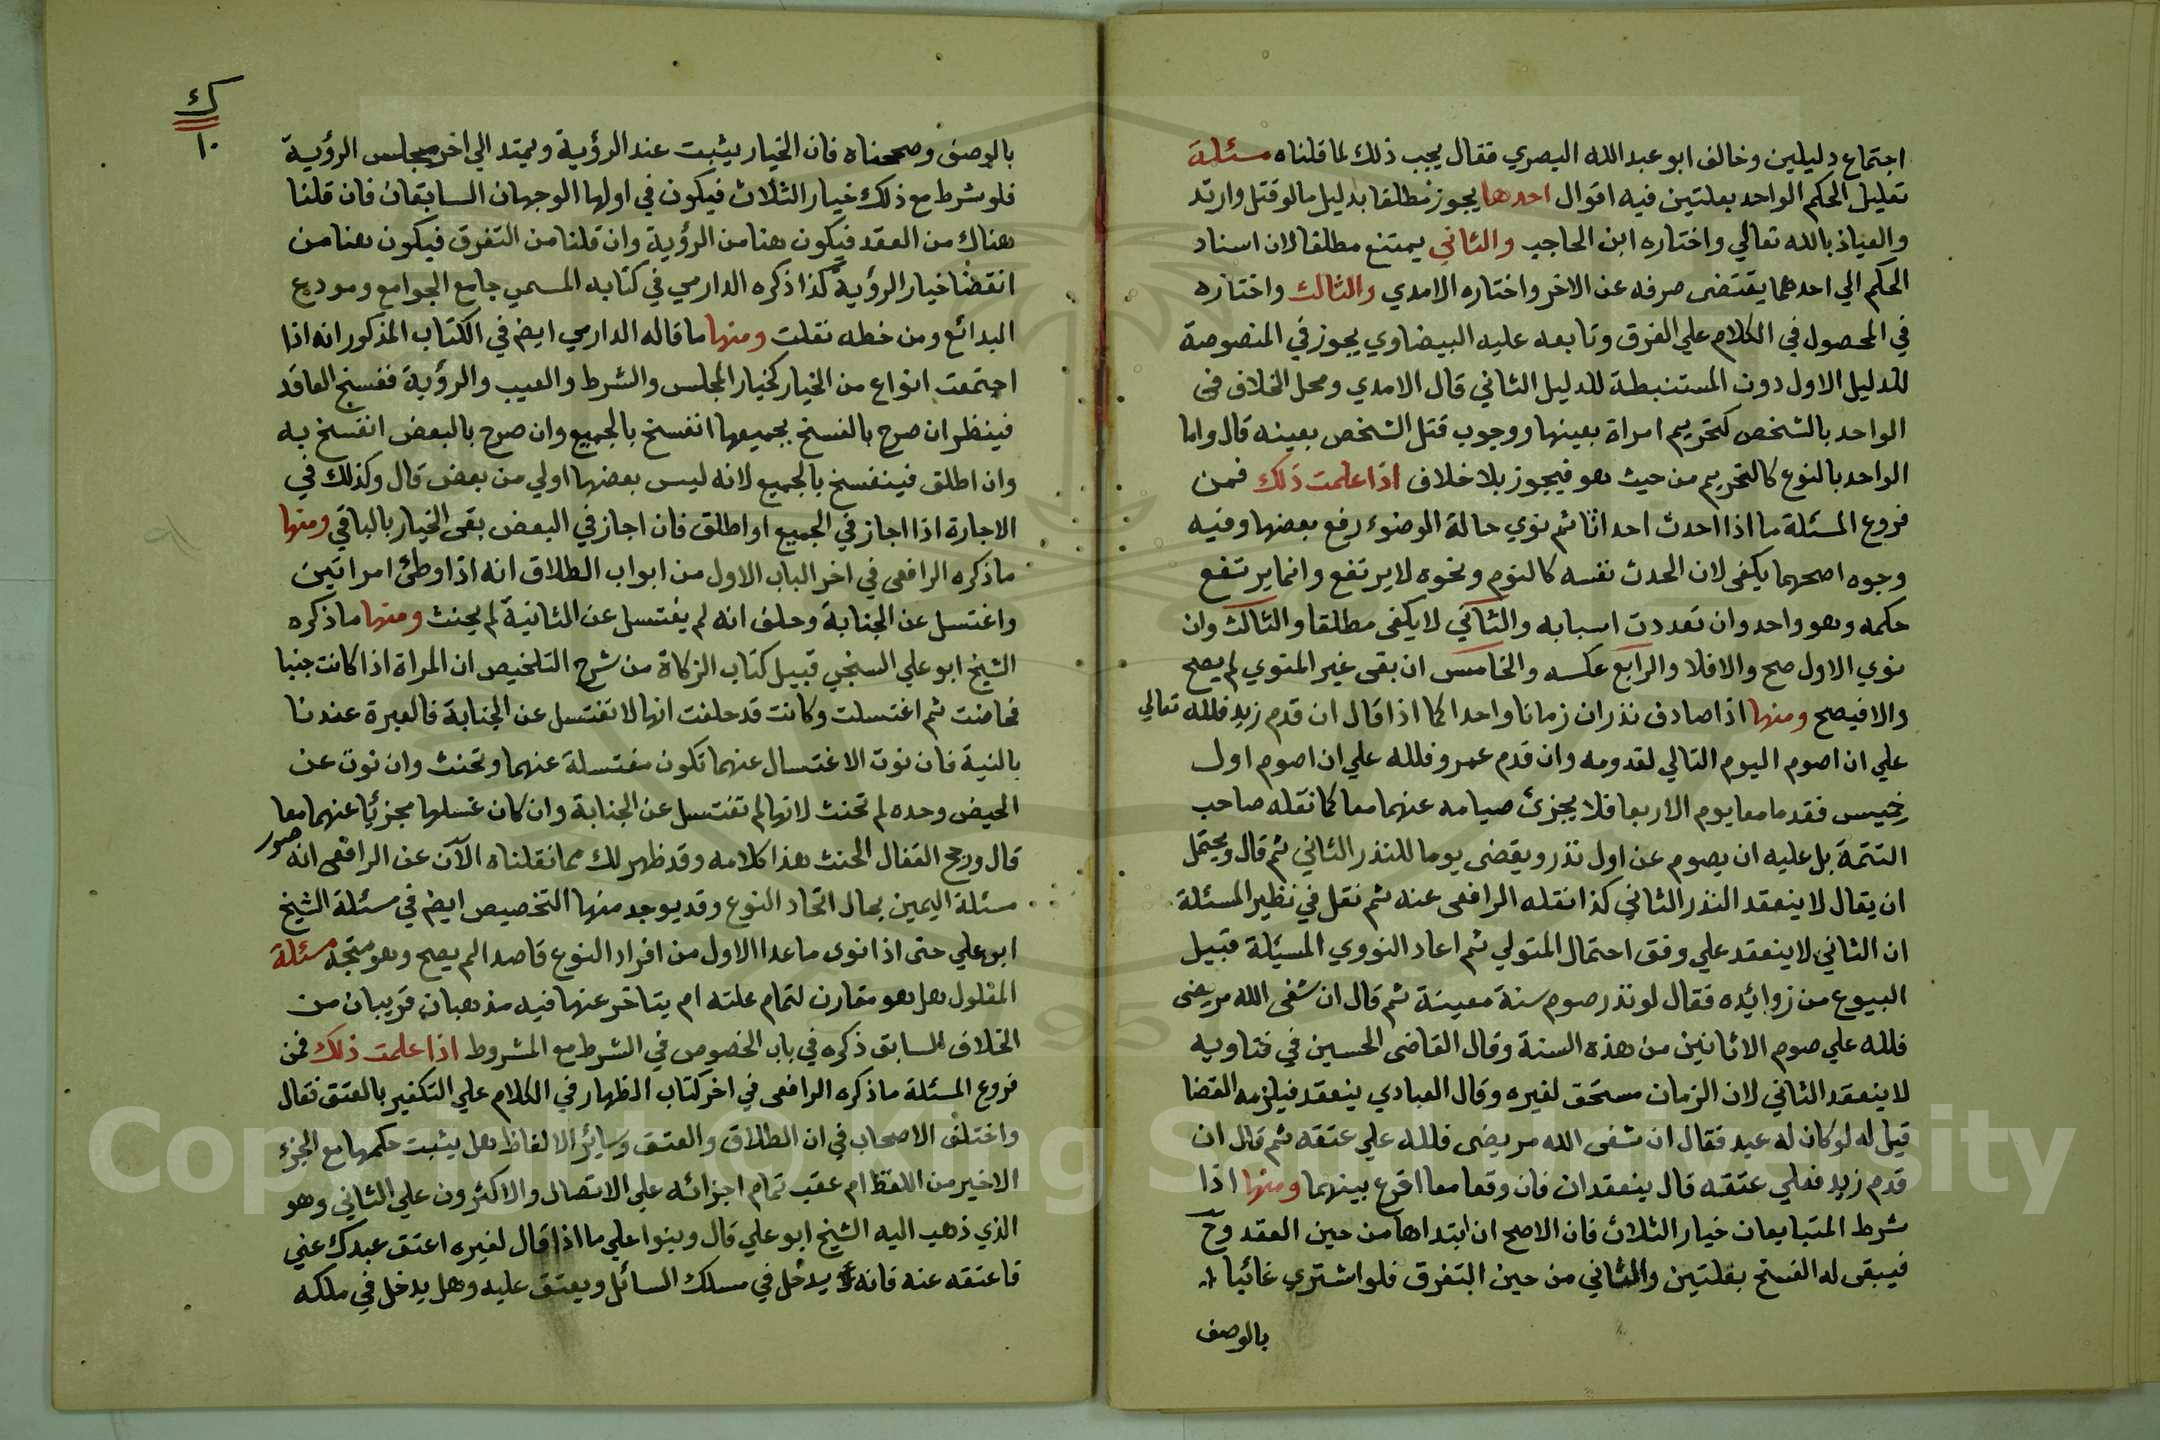 اجتماع دليلين وخالف ابو عبد الله البصري فقال يجب ذلك لما قلناه مسئلة
تعليل الحكم الواحد بعلتين فيه اقوال احدها يجوز مطلقا بدليل ما لو قتل وارتد
والعياذ بالله تعالي واختاره ابن الحاجب والثاني يمتنع مطلقا لان اسناد
الحكم الي احدهما يقتضى صرفه عن الاخر واختاره الامدي والثالث واختاره
في المحصول في الكلام علي الفرق وتابعه عليه البيضاوي يجوز في المنصوصة
للدليل الاول دون المستنبطة للدليل الثاني قال الامدي ومحل الخلاف في
الواحد بالشخص كتحريم امراة بعينها ووجوب قتل الشخص بعينه قال واما
الواحد بالنوع كالتحريم من حيث هو فيجوز بلا خلاف اذا علمت ذلك فمن
فروع المسئلة ما اذا احدث احداثا ثم نوي حالة الوضوء رفع بعضها وفيه
وجوه اصحهما يكفى لان الحدث نفسه كالنوم ونحوه لا يرتفع وانما يرتفع
حكمه وهو واحد وان تعددت اسبابه والثاني لا يكفى مطلقا والثالث وان
نوي الاول صح والا فلا والرابع عكسه والخامس ان بقى غير المنوي لم يصح
والا فيصح ومنها اذا صادف نذران زمانا واحدا كما اذا قال ان قدم زيد فلله تعالي
علي ان اصوم اليوم التالي لقدومه وان قدم عمرو فلله علي ان اصوم اول
خميس فقدما معا يوم الاربعا فلا يجزئ صيامه عنهما معا كما نقله صاحب
التتمة بل عليه ان يصوم عن اول نذر ويقضى يوما للنذر الثاني ثم قال ويحتمل
ان يقال لا ينعقد النذر الثاني كذا نقله الرافعى عنه ثم نقل في نظير المسئلة
ان الثاني لا ينعقد علي وفق احتمال المتولي ثم اعاد النووي المسئلة قبيل
البيوع من زوائده فقال لو نذر صوم سنة معينة ثم قال ان شفى الله مريضى
فلله علي صوم الاثانين من هذه السنة وقال القاضى الحسين في فتاويه
لا ينعقد الثاني لان الزمان مستحق لغيره وقال العبادي ينعقد فيلزمه القضا
قيل له لو كان له عبد فقال ان شفى الله مريضى فلله علي عتقه ثم قال ان
قدم زيد فعلي عتقه قال ينعقدان فان وقعا معا اقرع بينهما ومنها اذا
شرط المتبايعان خيار الثلاث فان الاصح ان ابتداها من حين العقد وح
فيبقى له الفسخ بعلتين والثاني من حين التفرق فلو اشتري غائبا
بالوصف
ك
١٠
بالوصف وصححناه فان الخيار يثبت عند الرؤية ويمتد الي اخر مجلس الرؤية
فلو شرط مع ذلك خيار الثلاث فيكون في اولها الوجهان السابقان فان قلنا
هناك من العقد فيكون هنا من الرؤية وان قلنا من التفرق فيكون هنا من
انقضا خيار الرؤية كذا ذكره الدارمي في كتابه المسمي جامع الجوامع ومودع
البدائع ومن خطه نقلت ومنها ما قاله الدارمي ايضا في الكتاب المذكور انه اذا
اجتمعت انواع من الخيار كخيار المجلس والشرط والعيب والرؤية ففسخ العاقد
فينظر ان صرح بالفسخ بجميعها انفسخ بالجميع وان صرح بالبعض انفسخ به
وان اطلق فينفسخ بالجميع لانه ليس بعضها اولي من بعض قال وكذلك في
الاجارة اذا اجاز في الجميع او اطلق فان اجاز في البعض بقى الخيار بالباقي ومنها
ما ذكره الرافعى في اخر الباب الاول من ابواب الطلاق انه اذا وطئ امراتين
واغتسل عن الجنابة وحلف انه لم يغتسل عن الثانية لم يحنث ومنها ما ذكره
الشيخ ابو علي السنجي قبيل كتاب الزكاة من شرح التلخيص ان المراة اذا كانت جنبا
فحاضت ثم اغتسلت وكانت قد حلفت انها لا تغتسل عن الجنابة فالعبرة عندنا
بالنية فان نوت الاغتسال عنهما تكون مغتسلة عنهما وتحنث وان نوت عن
الحيض وحده لم تحنث لانها لم تغتسل عن الجنابة وان كان غسلها مجزيا عنهما معا
قال ورجح القفال الحنث هذا كلامه وقد ظهر لك مما نقلناه الآن عن الرافعى انه صور
مسئلة اليمين بحال اتحاد النوع وقد يوجد منها التخصيص ايضا في مسئلة الشيخ
ابو علي حتى اذا نوى ما عدا الاول من افراد النوع قاصدا لم يصح وهو متجه مسئلة
المعلول هل هو مقارن لتمام علته ام يتاخر عنها فيه مذهبان قريبان من
الخلاف السابق ذكره في باب الخصوص في الشرط مع المشروط اذا علمت ذلك فمن
فروع المسئلة ما ذكره الرافعى في اخر كتاب الظهار في الكلام علي التكفير بالعتق فقال
واختلف الاصحاب في ان الطلاق والعتق وسائر الالفاظ هل يثبت حكمها مع الجزء
الاخير من اللفظ ام عقب تمام اجزائه علي الاتصال والاكثرون علي الثاني وهو
الذي ذهب اليه الشيخ ابو علي قال وبنوا علي ما اذا قال لغيره اعتق عبدك عني
فاعتقه عنه فانه يدخل في مسلك السائل ويعتق عليه وهل يدخل في ملكه
Copyright © King Saud University